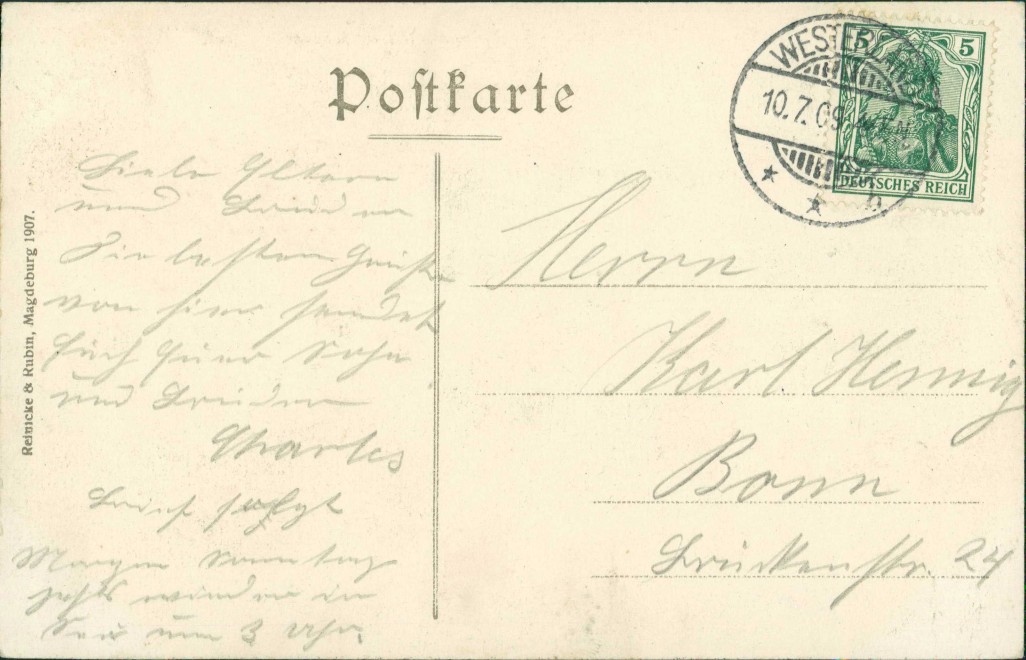 Postkarte
WESTERLAND
10.7.09
5 5
DEUTSCHES REICH
Reinicke & Rubin, Magdeburg 1907.
Liebe Eltern
und Brüder
Die besten Grüße
von hier sendet
Euch Euer Sohn
und Bruder
Charles
Brief folgt
Morgen Sonntag
gehts wieder in
See um 3 Uhr.
Herrn
Karl Hennig
Bonn
Brückenstr. 24